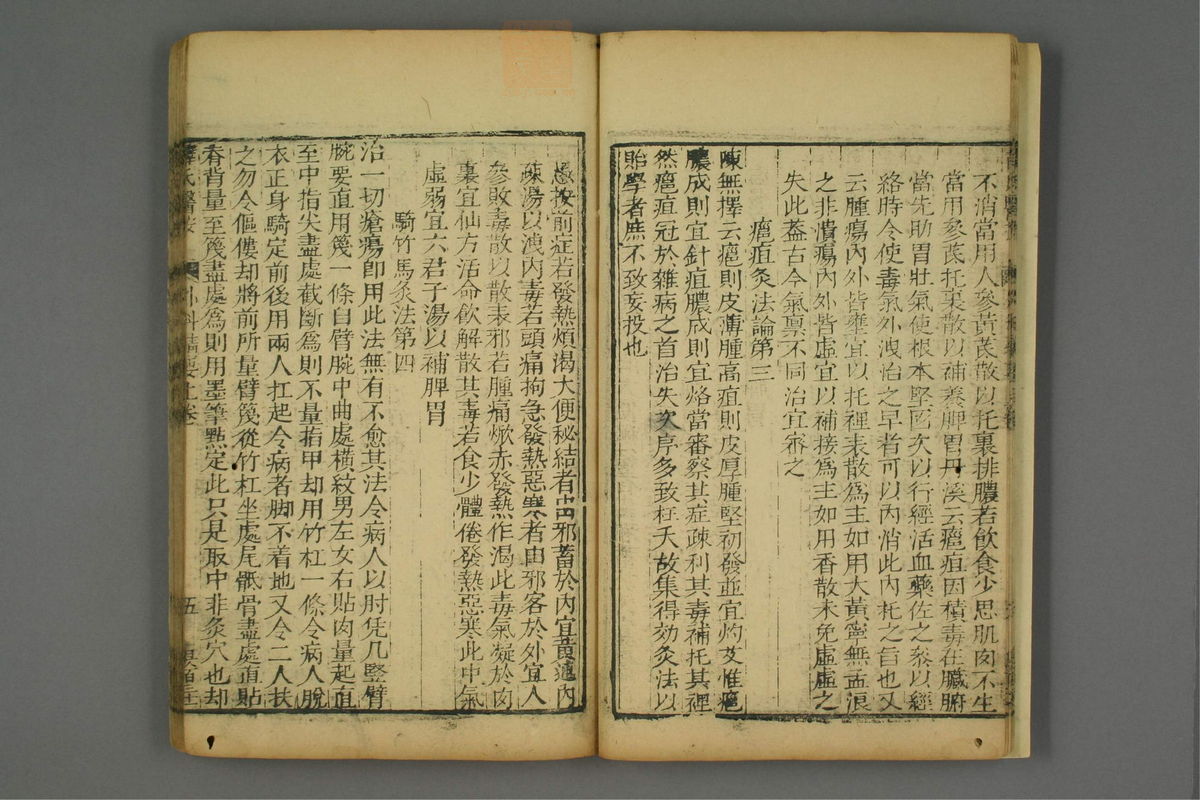 不消當用人參黃芪散以托裏排膿若飲食少思肌肉不生
當用參芪托裏散以補養脾胃丹溪云癰疽因積毒在臟腑
當先助胃壯氣使根本堅固次以行經活血藥佐之參以經
絡時令使毒氣外洩治之早者可以內消此內托之旨也又
云腫瘍內外皆壅宜以托裡表散為主如用大黃寧無孟浪
之非潰瘍內外皆虛宜以補接為主如用香散未免虛虛之
失此蓋古今氣禀不同治宜審之
癰疽灸法論第三
陳無擇云癰則皮薄腫高疽則皮厚腫堅初發並宜灼艾惟癰
膿成則宜針疽膿成則宜烙當審察其症疎利其毒補托其裡
然癰疽冠於雜病之首治失次序多致枉夭故集得効灸法以
貽學者庶不致妄投也
愚按前症若發熱煩渴大便秘結者由邪蓄於內宜黃連內
疎湯以瀉內毒若頭痛拘急發熱惡寒者由邪客於外宜人
參敗毒散以散表邪若腫痛焮赤發熱作渴此毒氣凝於肉
裏宜仙方活命飲解散其毒若食少體倦發熱惡寒此中氣
虛弱宜六君子湯以補脾胃
騎竹馬灸法第四
治一切瘡瘍卽用此法無有不愈其法令病人以肘凭几竪臂
腕要直用篾一條自臂腕中曲處橫紋男左女右貼肉量起直
至中指尖盡處截斷爲則不量指甲却用竹杠一條令病人脫
衣正身騎定前後用兩人扛起令病者脚不着地又令二人扶
之勿令傴僂却將前所量臂篾從竹杠坐處尾骶骨盡處直貼
脊背量至篾盡處爲則用墨筆點定此只是取中非灸穴也却
薛氏醫案
外科精要上卷
五